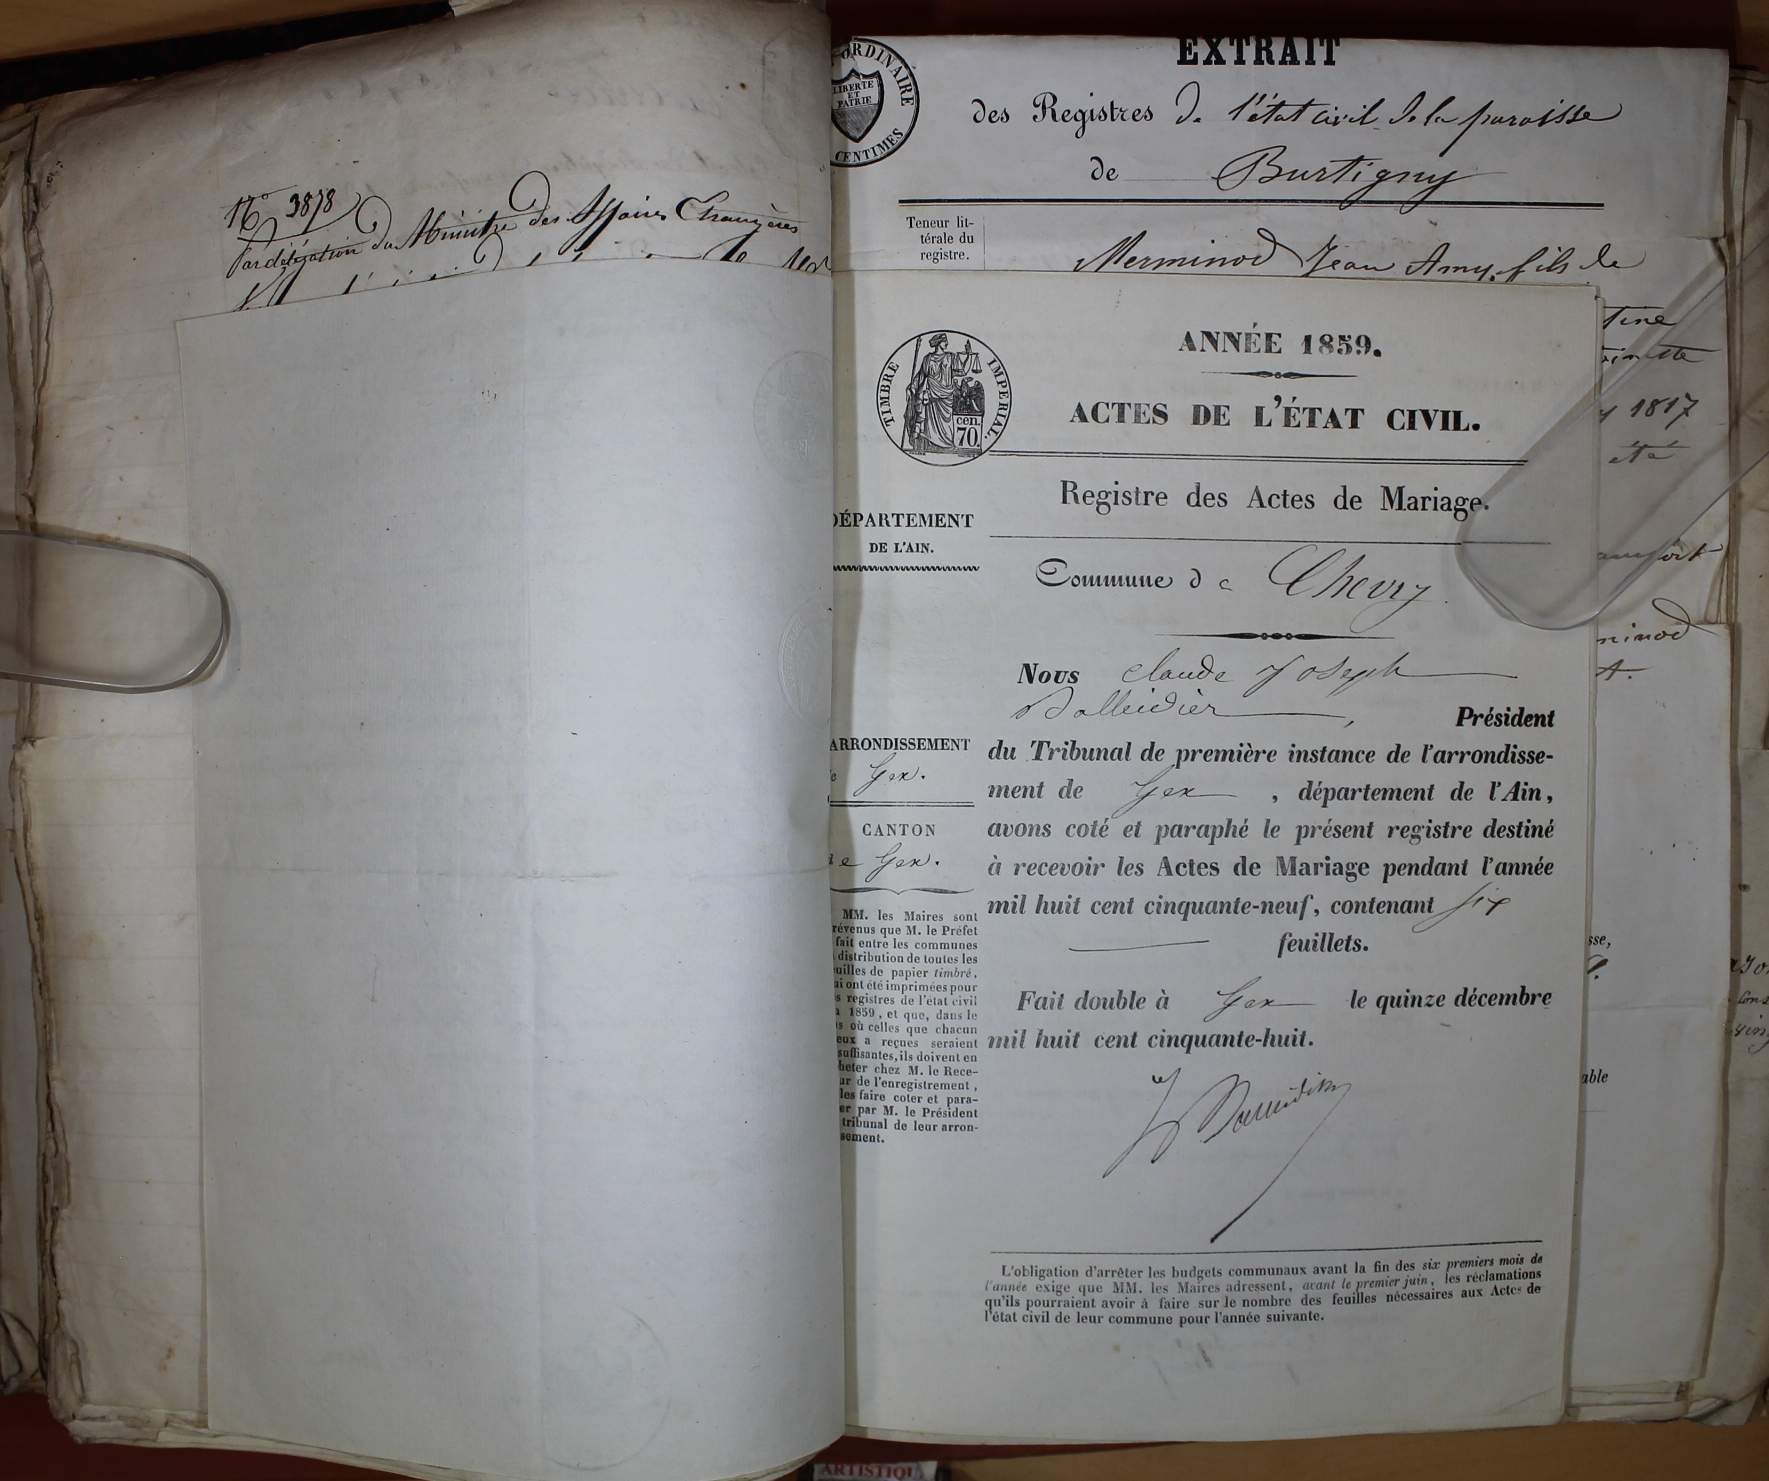 N° 3878
Par délégation du Ministre des Affaires Etrangères
ORDINAIRE
LIBERTE
ET
PATRIE
CENTIMES
EXTRAIT
des Registres de l'état civil de la paroisse
de Burtigny
Teneur lit-
térale du
registre.
Merminod Jean Amy, fils de
1817
été
minod
sse,
able
TIMBRE IMPERIAL.
cen.
70.
ANNÉE 1859.
ACTES DE L'ÉTAT CIVIL.
Registre des Actes de Mariage.
DÉPARTEMENT
DE L'AIN.
Commune de Chevry
Nous Claude Joseph
Balleidier, Président
du Tribunal de première instance de l'arrondisse-
ment de Gex, département de l'Ain,
avons coté et paraphé le présent registre destiné
à recevoir les Actes de Mariage pendant l'année
mil huit cent cinquante-neuf, contenant six
feuillets.
Fait double à Gex le quinze décembre
mil huit cent cinquante-huit.
ARRONDISSEMENT
Gex.
CANTON
de Gex.
MM. les Maires sont
révenus que M. le Préfet
fait entre les communes
distribution de toutes les
uilles de papier timbré,
ui ont été imprimées pour
s registres de l'état civil
1859, et que, dans le
s où celles que chacun
eux a reçues seraient
suffisantes, ils doivent en
heter chez M. le Rece-
ur de l'enregistrement,
les faire coter et para-
er par M. le Président
tribunal de leur arron-
sement.
L'obligation d'arrêter les budgets communaux avant la fin des six premiers mois de
l'année exige que MM. les Maires adressent, avant le premier juin, les réclamations
qu'ils pourraient avoir à faire sur le nombre des feuilles nécessaires aux Actes de
l'état civil de leur commune pour l'année suivante.
ARTISTIQU